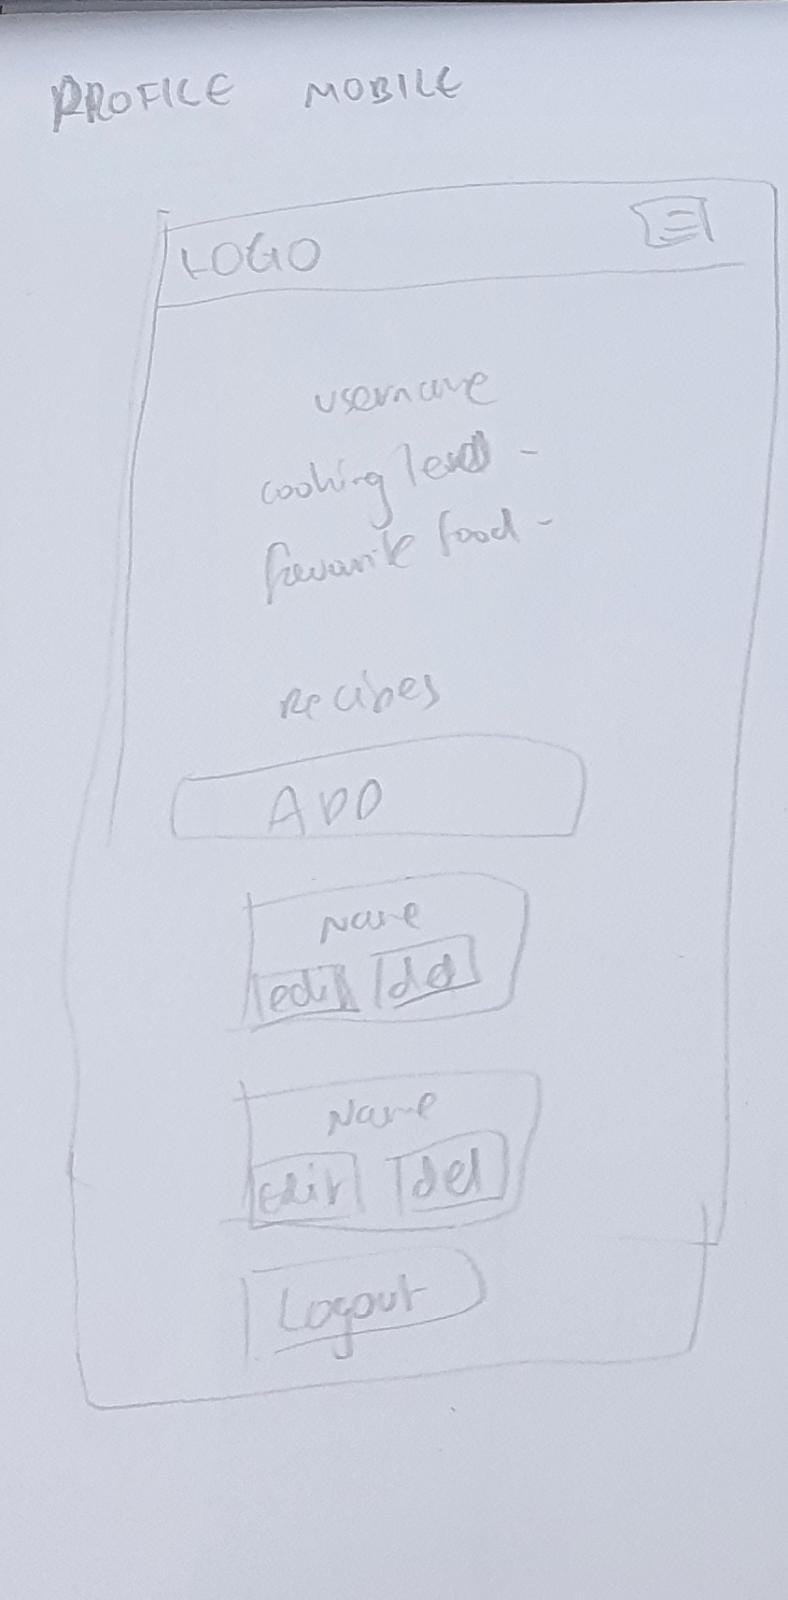 PROFILE MOBILE
LOGO
username
cooking level -
favorite food -
Recipes
ADD
Name
edit del
Name
edit del
Logout